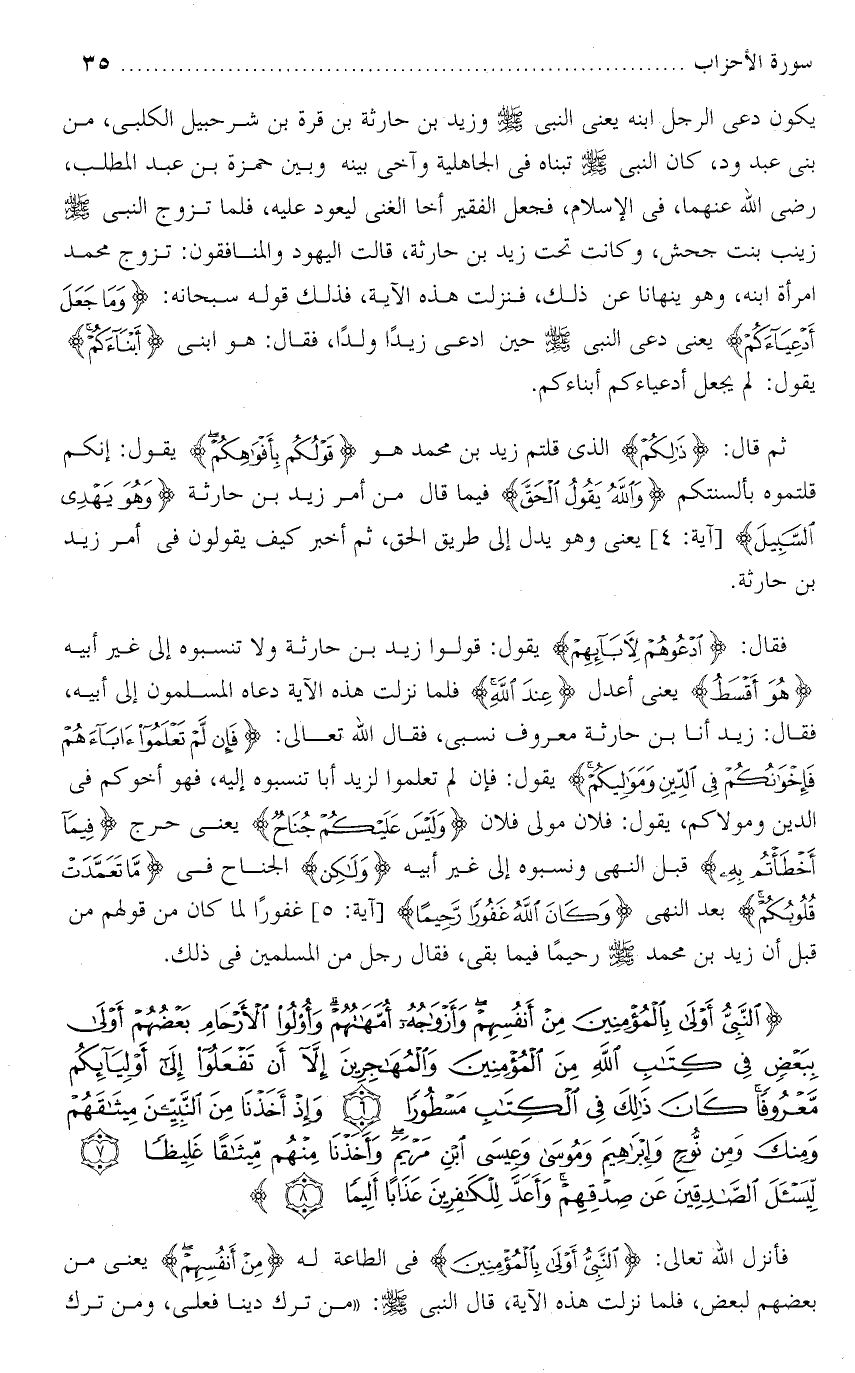 سورة الأحزاب ........................................................................ ٣٥
يكون دعى الرجل ابنه يعنى النبى ﷺ وزيد بن حارثة بن قرة بن شرحبيل الكلبى، من
بنى عبد ود، كان النبى ﷺ تبناه فى الجاهلية وآخى بينه وبين حمزة بن عبد المطلب،
رضى الله عنهما، فى الإسلام، فجعل الفقير أخا الغنى ليعود عليه، فلما تزوج النبى ﷺ
زينب بنت جحش، وكانت تحت زيد بن حارثة، قالت اليهود والمنافقون: تزوج محمد
امرأة ابنه، وهو ينهانا عن ذلك، فنزلت هذه الآية، فذلك قوله سبحانه: ﴿وَمَا جَعَلَ
أَدْعِيَآءَكُمْ﴾ يعنى دعى النبى ﷺ حين ادعى زيدًا ولدًا، فقال: هو ابنى ﴿أَبْنَآءَكُمْ ۚ﴾
يقول: لم يجعل أدعياءكم أبناءكم.
ثم قال: ﴿ذَٰلِكُمْ﴾ الذى قلتم زيد بن محمد هو ﴿قَوْلُكُم بِأَفْوَٰهِكُمْ ۖ﴾ يقول: إنكم
قلتموه بألسنتكم ﴿وَٱللَّهُ يَقُولُ ٱلْحَقَّ﴾ فيما قال من أمر زيد بن حارثة ﴿وَهُوَ يَهْدِى
ٱلسَّبِيلَ﴾ [آية: ٤] يعنى وهو يدل إلى طريق الحق، ثم أخبر كيف يقولون فى أمر زيد
بن حارثة.
فقال: ﴿ٱدْعُوهُمْ لِءَابَآئِهِمْ﴾ يقول: قولوا زيد بن حارثة ولا تنسبوه إلى غير أبيه
﴿هُوَ أَقْسَطُ﴾ يعنى أعدل ﴿عِندَ ٱللَّهِ ۚ﴾ فلما نزلت هذه الآية دعاه المسلمون إلى أبيه،
فقال: زيد أنا بن حارثة معروف نسبى، فقال الله تعالى: ﴿فَإِن لَّمْ تَعْلَمُوٓا۟ ءَابَآءَهُمْ
فَإِخْوَٰنُكُمْ فِى ٱلدِّينِ وَمَوَٰلِيكُمْ ۚ﴾ يقول: فإن لم تعلموا لزيد أبا تنسبوه إليه، فهو أخوكم فى
الدين ومولاكم، يقول: فلان مولى فلان ﴿وَلَيْسَ عَلَيْكُمْ جُنَاحٌ﴾ يعنى حرج ﴿فِيمَآ
أَخْطَأْتُم بِهِۦ﴾ قبل النهى ونسبوه إلى غير أبيه ﴿وَلَٰكِن﴾ الجناح فى ﴿مَّا تَعَمَّدَتْ
قُلُوبُكُمْ ۚ﴾ بعد النهى ﴿وَكَانَ ٱللَّهُ غَفُورًا رَّحِيمًا﴾ [آية: ٥] غفورًا لما كان من قولهم من
قبل أن زيد بن محمد ﷺ رحيمًا فيما بقى، فقال رجل من المسلمين فى ذلك.
﴿ٱلنَّبِىُّ أَوْلَىٰ بِٱلْمُؤْمِنِينَ مِنْ أَنفُسِهِمْ ۖ وَأَزْوَٰجُهُۥٓ أُمَّهَٰتُهُمْ ۗ وَأُو۟لُوا۟ ٱلْأَرْحَامِ بَعْضُهُمْ أَوْلَىٰ
بِبَعْضٍ فِى كِتَٰبِ ٱللَّهِ مِنَ ٱلْمُؤْمِنِينَ وَٱلْمُهَٰجِرِينَ إِلَّآ أَن تَفْعَلُوٓا۟ إِلَىٰٓ أَوْلِيَآئِكُم
مَّعْرُوفًا ۚ كَانَ ذَٰلِكَ فِى ٱلْكِتَٰبِ مَسْطُورًا ٦ وَإِذْ أَخَذْنَا مِنَ ٱلنَّبِيِّۦنَ مِيثَٰقَهُمْ
وَمِنكَ وَمِن نُّوحٍ وَإِبْرَٰهِيمَ وَمُوسَىٰ وَعِيسَى ٱبْنِ مَرْيَمَ ۖ وَأَخَذْنَا مِنْهُم مِّيثَٰقًا غَلِيظًا ٧
لِّيَسْـَٔلَ ٱلصَّٰدِقِينَ عَن صِدْقِهِمْ ۚ وَأَعَدَّ لِلْكَٰفِرِينَ عَذَابًا أَلِيمًا ٨﴾
فأنزل الله تعالى: ﴿ٱلنَّبِىُّ أَوْلَىٰ بِٱلْمُؤْمِنِينَ﴾ فى الطاعة له ﴿مِنْ أَنفُسِهِمْ ۖ﴾ يعنى من
بعضهم لبعض، فلما نزلت هذه الآية، قال النبى ﷺ: «من ترك دينا فعلى، ومن ترك